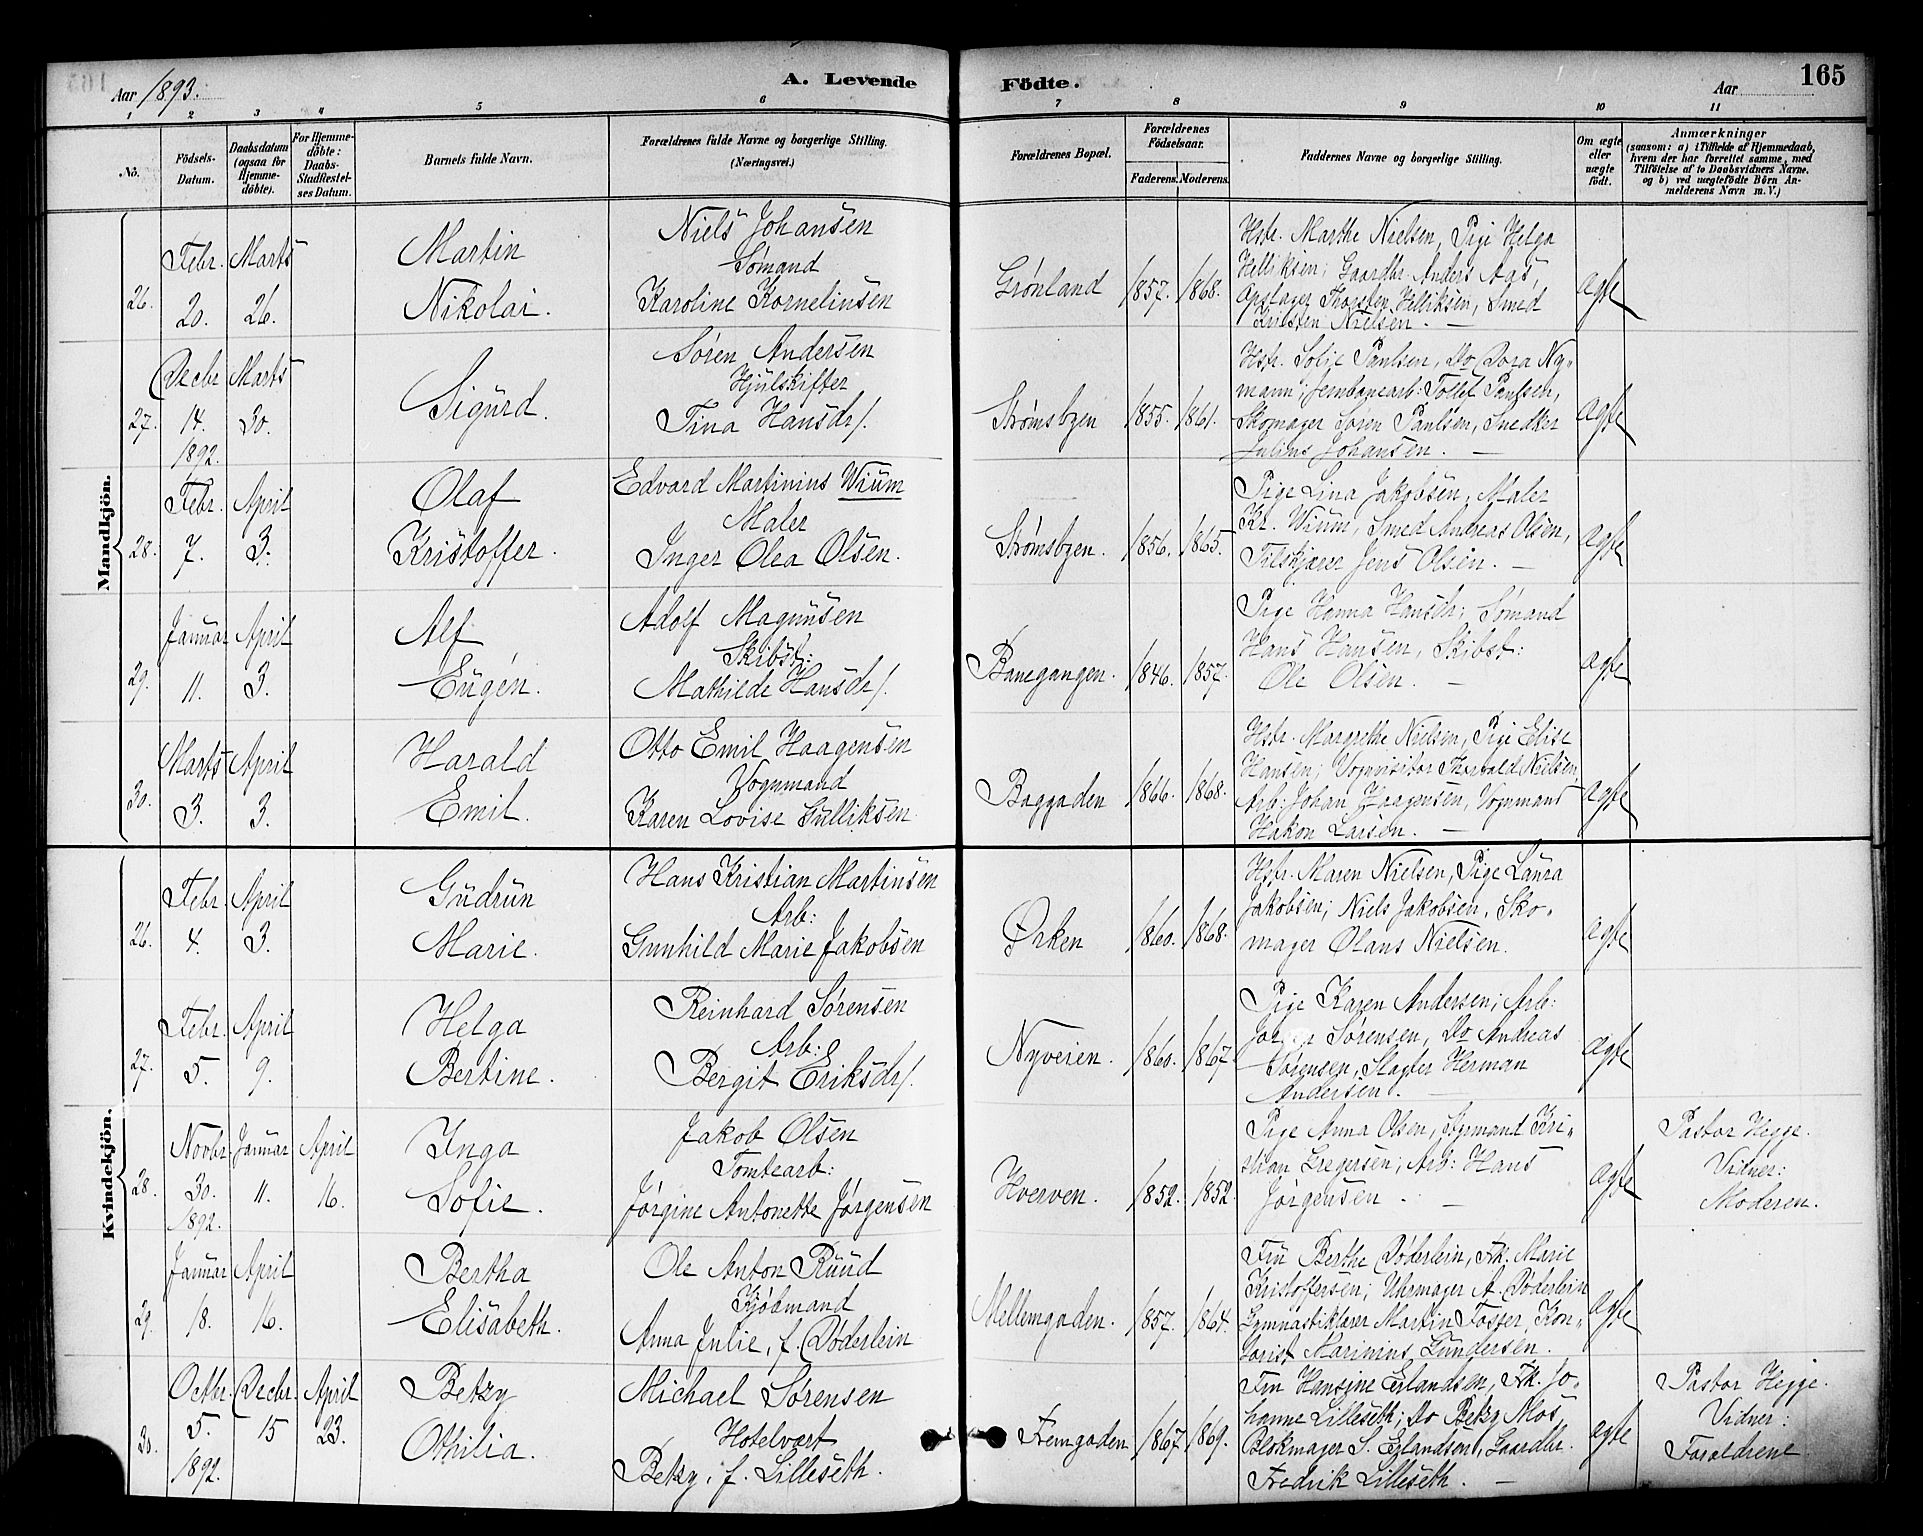 165
Aar 1893.
A. Levende Födte.
Aar
1 2 3 4 5 6 7 8 9 10 11
No.
Födsels-
Datum.
Daabsdatum
(ogsaa for
Hjemme-
döbte).
For Hjemme-
döbte:
Daabs-
Stadfæstel-
ses Datum.
Barnets fulde Navn.
Forældrenes fulde Navne og borgerlige Stilling.
(Næringsvei.)
Forældrenes Bopæl.
Forældrenes
Födselsaar.
Faderens. Moderens.
Faddernes Navne og borgerlige Stilling.
Om ægte
eller
uægte
födt.
Anmærkninger
(saasom: a) i Tilfælde af Hjemmedaab,
hvem der har forrettet samme, med
Tilföielse af to Daabsvidners Navne,
og b) ved uægtefödte Börn An-
melderens Navn m. V.)
Mandkjön.
26.
Febr.
20.
Marts
26.
Martin
Nikolai.
Niels Johansen
Sømand
Karoline Kornelinsen
Grønland
1857. 1868.
Hstr. Marthe Nielsen, Pige Helga
Helliksen; Gaardbr. Anders Aas,
Opstager Thorsten Helliksen, Smed
Kristen Nielsen. —
ægte
27.
Decbr
14.
1892.
Marts
30.
Sigurd.
Søren Andersen
Hjulskifter
Tina Hansdr/.
Strømsbyen
1855. 1861.
Hstr. Sofie Paulsen, Do Dora Ny-
mann; Jernbanearb: Tollef Paulsen,
Skomager Søren Paulsen, Snedker
Julius Johansen. —
ægte
28.
Febr.
7.
April
3.
Olaf
Kristoffer.
Edvard Martinius Wium
Maler
Inger Olea Olsen.
Strømsbyen.
1856. 1865.
Pige Lina Jakobsen, Maler
Kr. Wium, Smed Andreas Olsen,
Filskjærer Jens Olsen. —
ægte
29.
Januar
11.
April
3.
Alf
Eugén.
Adolf Magnusen
Skibst:
Mathilde Hansdr/.
Banegangen.
1846. 1857.
Pige Hanna Hansen; Sømand
Hans Hansen, Skibst:
Ole Olsen. —
ægte
30.
Marts
3.
April
3.
Harald
Emil.
Otto Emil Haagensen
Vognmand
Karen Lovise Gulliksen
Baggaden
1866. 1868.
Hstr. Margrethe Nielsen, Pige Elise
Hansen; Vognvisitør Thorvald Nielsen
Arb: Johan Haagensen, Vognmand
Hakon Larsen. —
ægte
Kvindekjön.
26.
Febr.
4.
April
3.
Gudrun
Marie.
Hans Kristian Martinsen
Arb:
Gunhild Marie Jakobsen
Ørken
1860. 1868.
Hstr. Maren Nielsen, Pige Laura
Jakobsen; Niels Jakobsen, Sko-
mager Olaus Nielsen.
ægte
27.
Febr.
5.
April
9.
Helga
Bertine.
Reinhard Sørensen
Arb:
Bergit Eriksdr/.
Nyveien.
1860. 1867.
Pige Karen Andersen; Arb:
Sørensen, Do Andreas
Sørensen, Slagter Herman
Andersen. —
ægte
28.
Novbr.
30.
1892.
Januar
11.
April
16.
Inga
Sofie.
Jakob Olsen
Tomtearb:
Jørgine Antonette Jørgensen
Hverven.
1852. 1852.
Pige Anna Olsen, Agnmand Kri-
stian Gregersen; Arb: Hans
Jørgensen. —
ægte
Pastor Hegge.
Vidner:
Moderen.
29.
Januar
18.
April
16.
Bertha
Elisabeth.
Ole Anton Ruud
Kjøbmand
Anna Julie, f. Døderlein
Mellemgaden.
1857. 1864.
Fru Berthe Døderlein, Frk. Marie
Kristoffersen; Uhrmager A. Døderlein
Gymnastiklærer Martin Fosser, Kon-
torist Marinius Gundersen.
ægte
30.
Octbr.
5.
1892.
Decbr.
15
April
23.
Betzy
Othilia.
Michael Sørensen
Hotelvært
Betzy, f. Lilleseth.
Fremgaden
1867. 1869.
Fru Hansine Erlandsen, Frk. Jo-
hanne Lilleseth; Do Betzy Moss
Blokmager S. Erlandsen, Gaardbr.
Fredrik Lilleseth. —
ægte
Pastor Hegge.
Vidner:
Forældrene